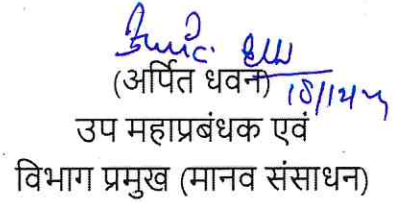 (अर्पित धवन)
उप महाप्रबंधक एवं
विभाग प्रमुख (मानव संसाधन)